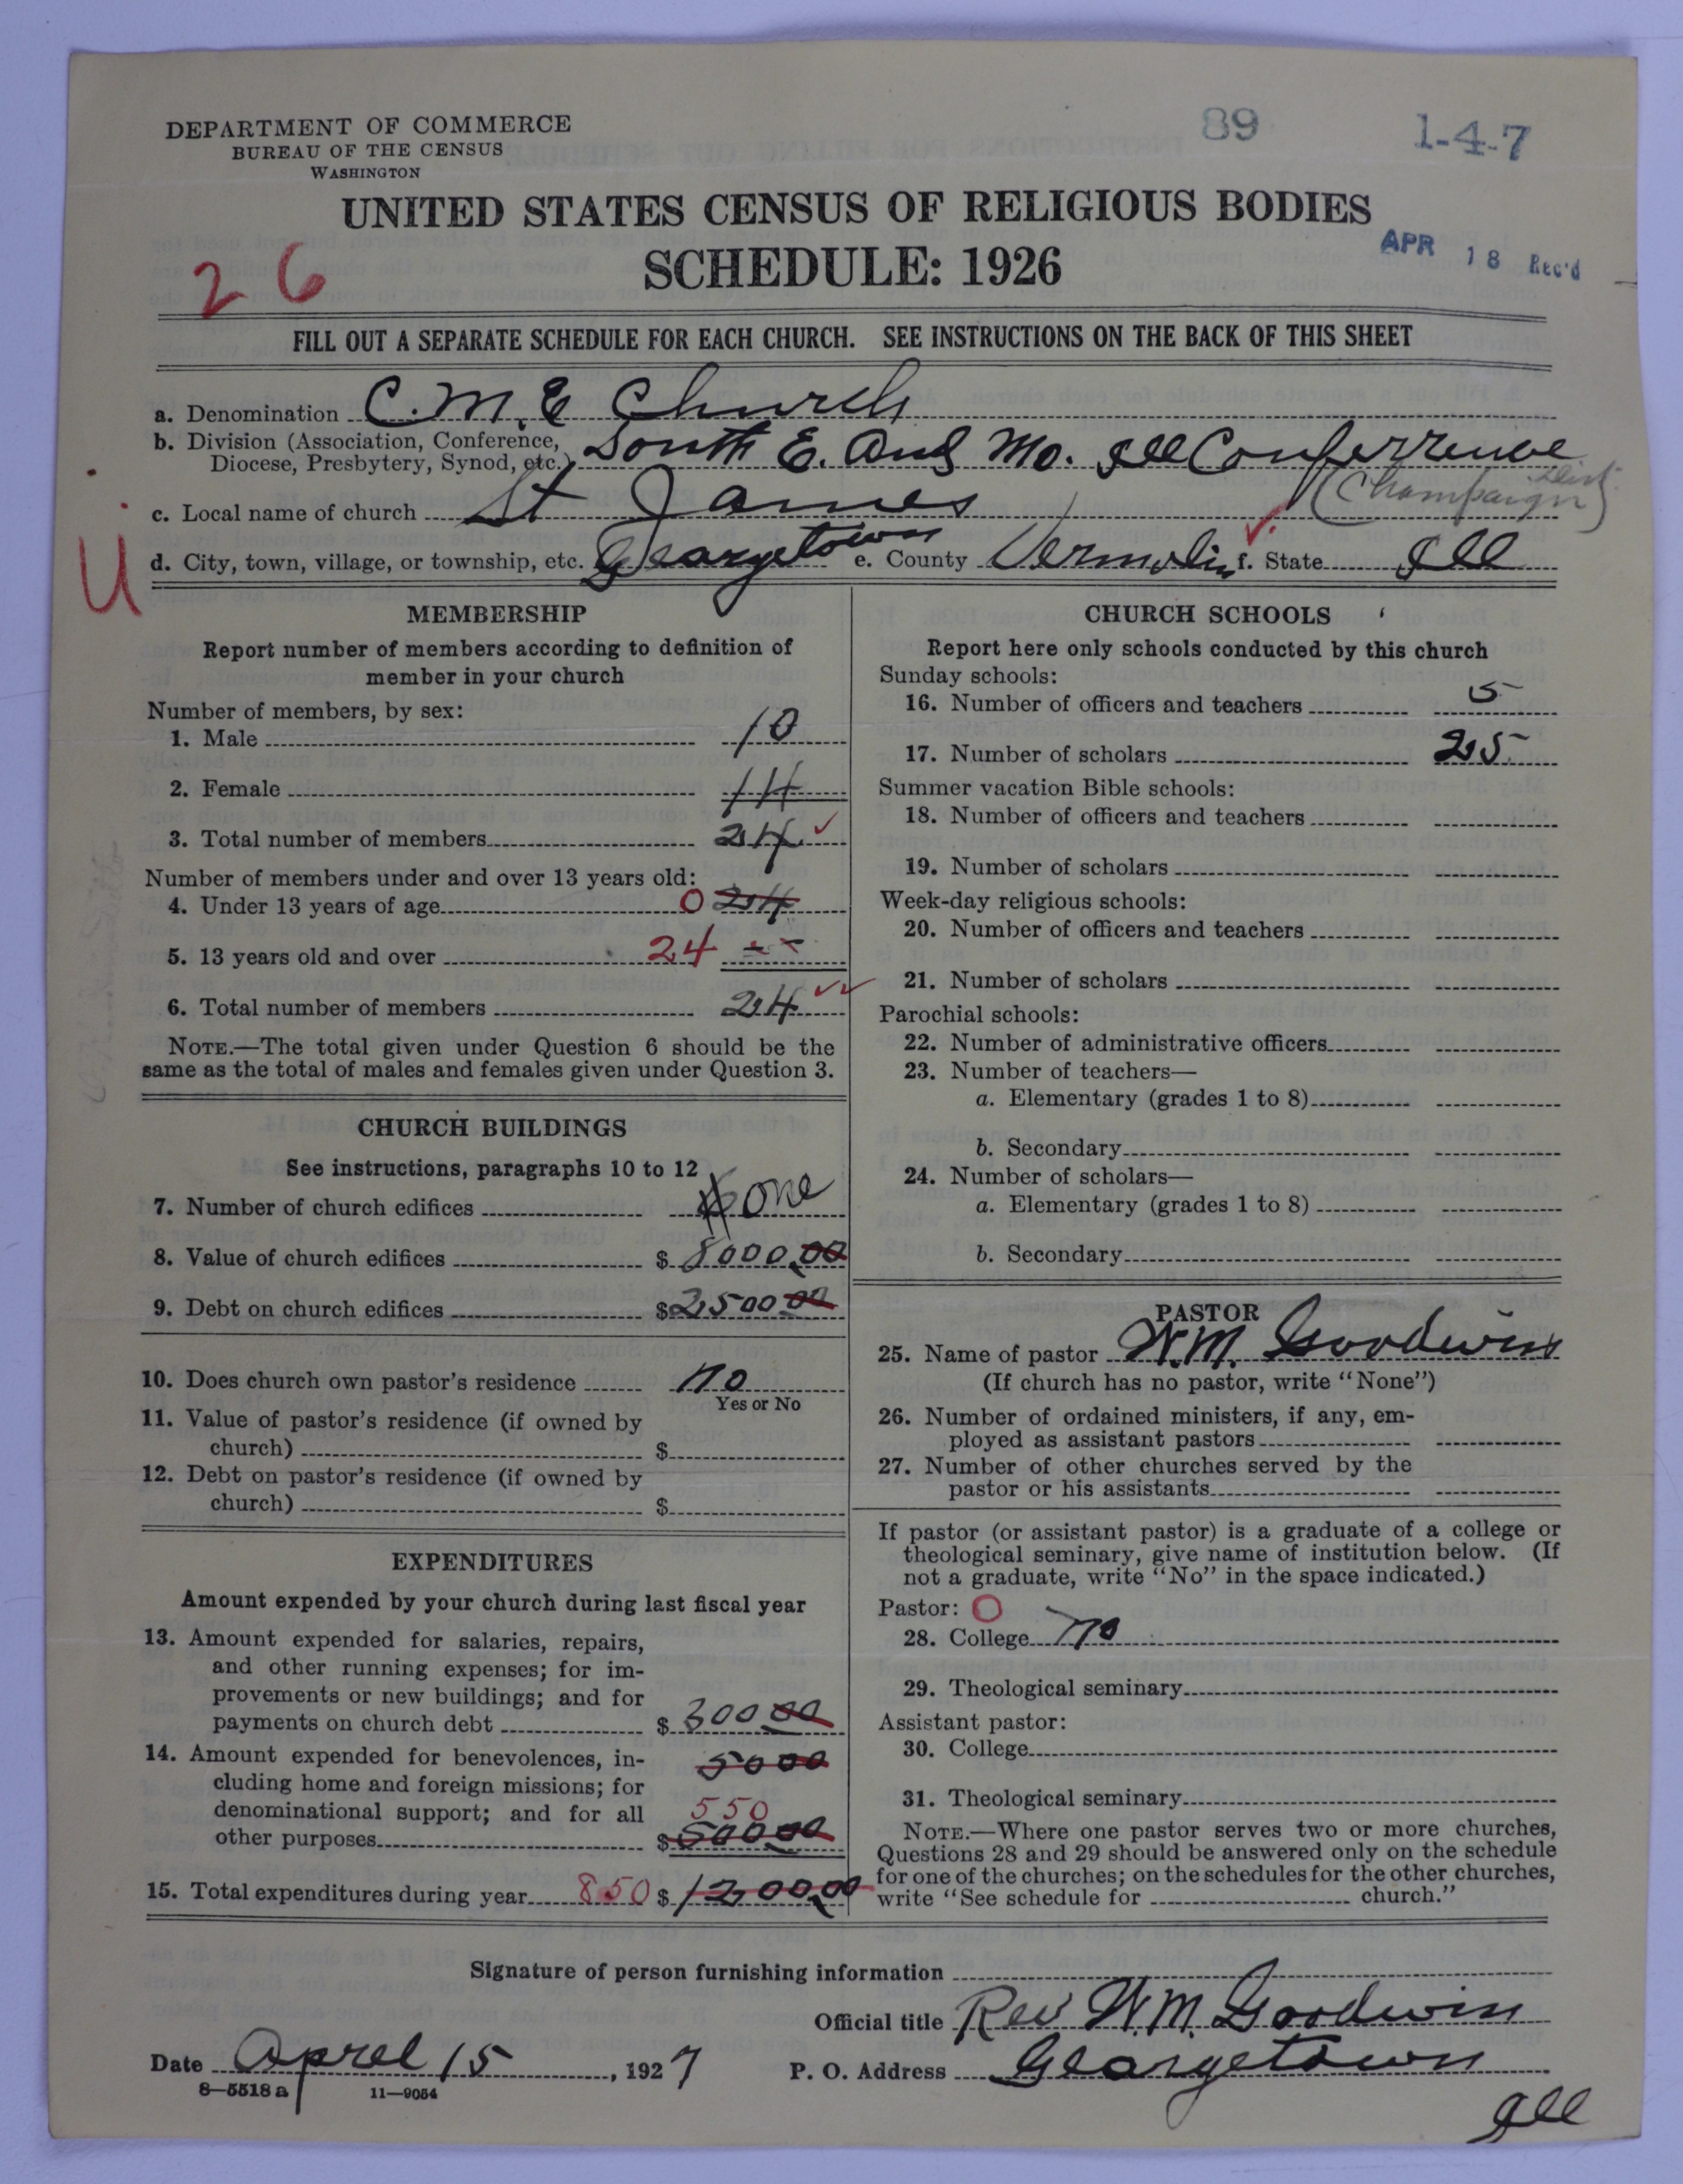 DEPARTMENT OF COMMERCE
BUREAU OF THE CENSUS
WASHINGTON
89
1-4-7
UNITED STATES CENSUS OF RELIGIOUS BODIES
SCHEDULE: 1926
APR 18 Rec'd
26
FILL OUT A SEPARATE SCHEDULE FOR EACH CHURCH. SEE INSTRUCTIONS ON THE BACK OF THIS SHEET
a. Denomination C. M. E Church
b. Division (Association, Conference, Diocese, Presbytery, Synod, etc.) South E. and Mo. Ill Conferrence
(Champaign Dist.)
c. Local name of church St James
U
d. City, town, village, or township, etc. Georgetown e. County Vermolin f. State Ill
MEMBERSHIP
Report number of members according to definition of
member in your church
Number of members, by sex:
1. Male 10
2. Female 14
3. Total number of members 24
Number of members under and over 13 years old:
4. Under 13 years of age 0 24
5. 13 years old and over 24 - -
6. Total number of members 24
NOTE.—The total given under Question 6 should be the
same as the total of males and females given under Question 3.
CHURCH BUILDINGS
See instructions, paragraphs 10 to 12
7. Number of church edifices one
8. Value of church edifices $ 8000.00
9. Debt on church edifices $ 2500 00
10. Does church own pastor's residence no
Yes or No
11. Value of pastor's residence (if owned by
church) $
12. Debt on pastor's residence (if owned by
church) $
EXPENDITURES
Amount expended by your church during last fiscal year
13. Amount expended for salaries, repairs,
and other running expenses; for im-
provements or new buildings; and for
payments on church debt $ 300 00
14. Amount expended for benevolences, in- 50 00
cluding home and foreign missions; for
denominational support; and for all 550
other purposes $ 500 00
15. Total expenditures during year 850 $ 1200.00
CHURCH SCHOOLS
Report here only schools conducted by this church
Sunday schools:
16. Number of officers and teachers 5
17. Number of scholars 25
Summer vacation Bible schools:
18. Number of officers and teachers
19. Number of scholars
Week-day religious schools:
20. Number of officers and teachers
21. Number of scholars
Parochial schools:
22. Number of administrative officers
23. Number of teachers—
a. Elementary (grades 1 to 8)
b. Secondary
24. Number of scholars—
a. Elementary (grades 1 to 8)
b. Secondary
PASTOR
25. Name of pastor W.M. Goodwin
(If church has no pastor, write "None")
26. Number of ordained ministers, if any, em-
ployed as assistant pastors
27. Number of other churches served by the
pastor or his assistants
If pastor (or assistant pastor) is a graduate of a college or
theological seminary, give name of institution below. (If
not a graduate, write "No" in the space indicated.)
Pastor: O
28. College no
29. Theological seminary
Assistant pastor:
30. College
31. Theological seminary
NOTE.—Where one pastor serves two or more churches,
Questions 28 and 29 should be answered only on the schedule
for one of the churches; on the schedules for the other churches,
write "See schedule for church."
Signature of person furnishing information
Official title Rev W.M. Goodwin
Date Aprel 15, 1927 P. O. Address Georgetown
Ill
8—5518 a 11—9054